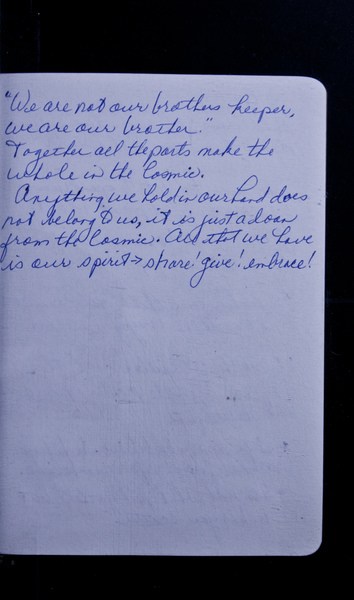 "We are not our brothers keeper,
we are our brother."
Together all the parts make the
whole in the Cosmic.
Anything we hold in our hand does
not belong to us, it is just a loan
from the Cosmic. All that we have
is our spirit → share! give! embrace!